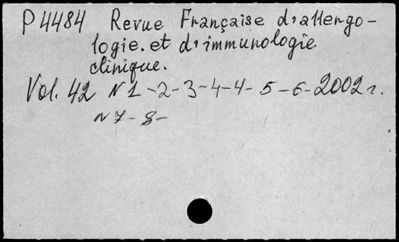 P 4484 Revue Française d'allergo-
logie. et d'immunologie
clinique.
Vol. 42 N 1-2-3-4-4-5-6-2002 г.
N 7-8-